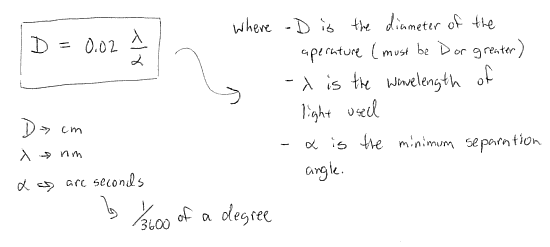 D = 0.02 λ/α
where - D is the diameter of the
aperature (must be D or greater)
- λ is the wavelength of
light used
- α is the minimum separation
angle.
D → cm
λ → nm
α ⇒ arc seconds
1/3600 of a degree